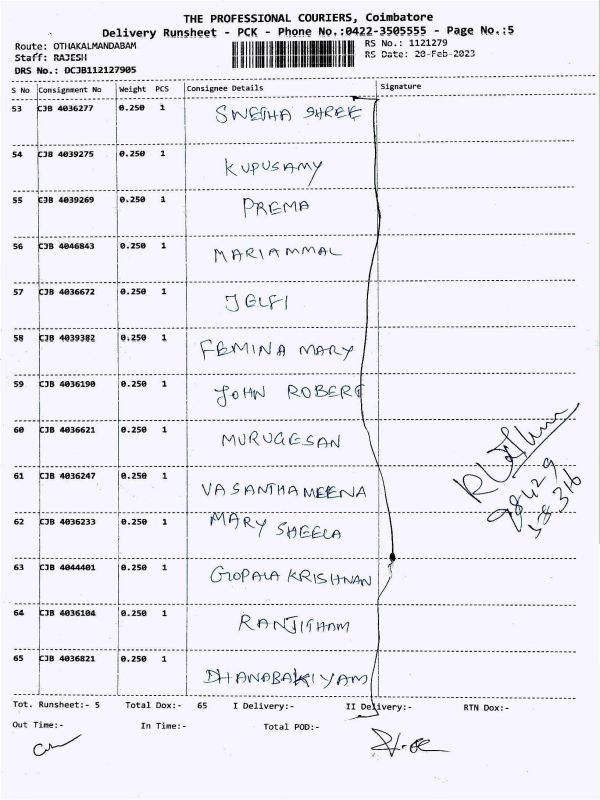 THE PROFESSIONAL COURIERS, Coimbatore
Delivery Runsheet - PCK - Phone No.:0422-3505555 - Page No.:5
Route: OTHAKALMANDABAM RS No.: 1121279
Staff: RAJESH RS Date: 20-Feb-2023
DRS No.: DCJB112127905
S No Consignment No Weight PCS Consignee Details Signature
53 CJB 4036277 0.250 1 SWETHA SHREE
54 CJB 4039275 0.250 1 KUPUSAMY
55 CJB 4039269 0.250 1 PREMA
56 CJB 4046843 0.250 1 MARIAMMAL
57 CJB 4036672 0.250 1 JELFI
58 CJB 4039382 0.250 1 FEMINA MARY
59 CJB 4036190 0.250 1 JOHN ROBERT
60 CJB 4036621 0.250 1 MURUGESAN
61 CJB 4036247 0.250 1 VASANTHAMEENA
62 CJB 4036233 0.250 1 MARY SHEELA
63 CJB 4044401 0.250 1 GOPALA KRISHNAN
64 CJB 4036104 0.250 1 RANJITHAM
65 CJB 4036821 0.250 1 DHANABAKIYAM
98429
58316
Tot. Runsheet:- 5 Total Dox:- 65 I Delivery:- II Delivery:- RTN Dox:-
Out Time:- In Time:- Total POD:-